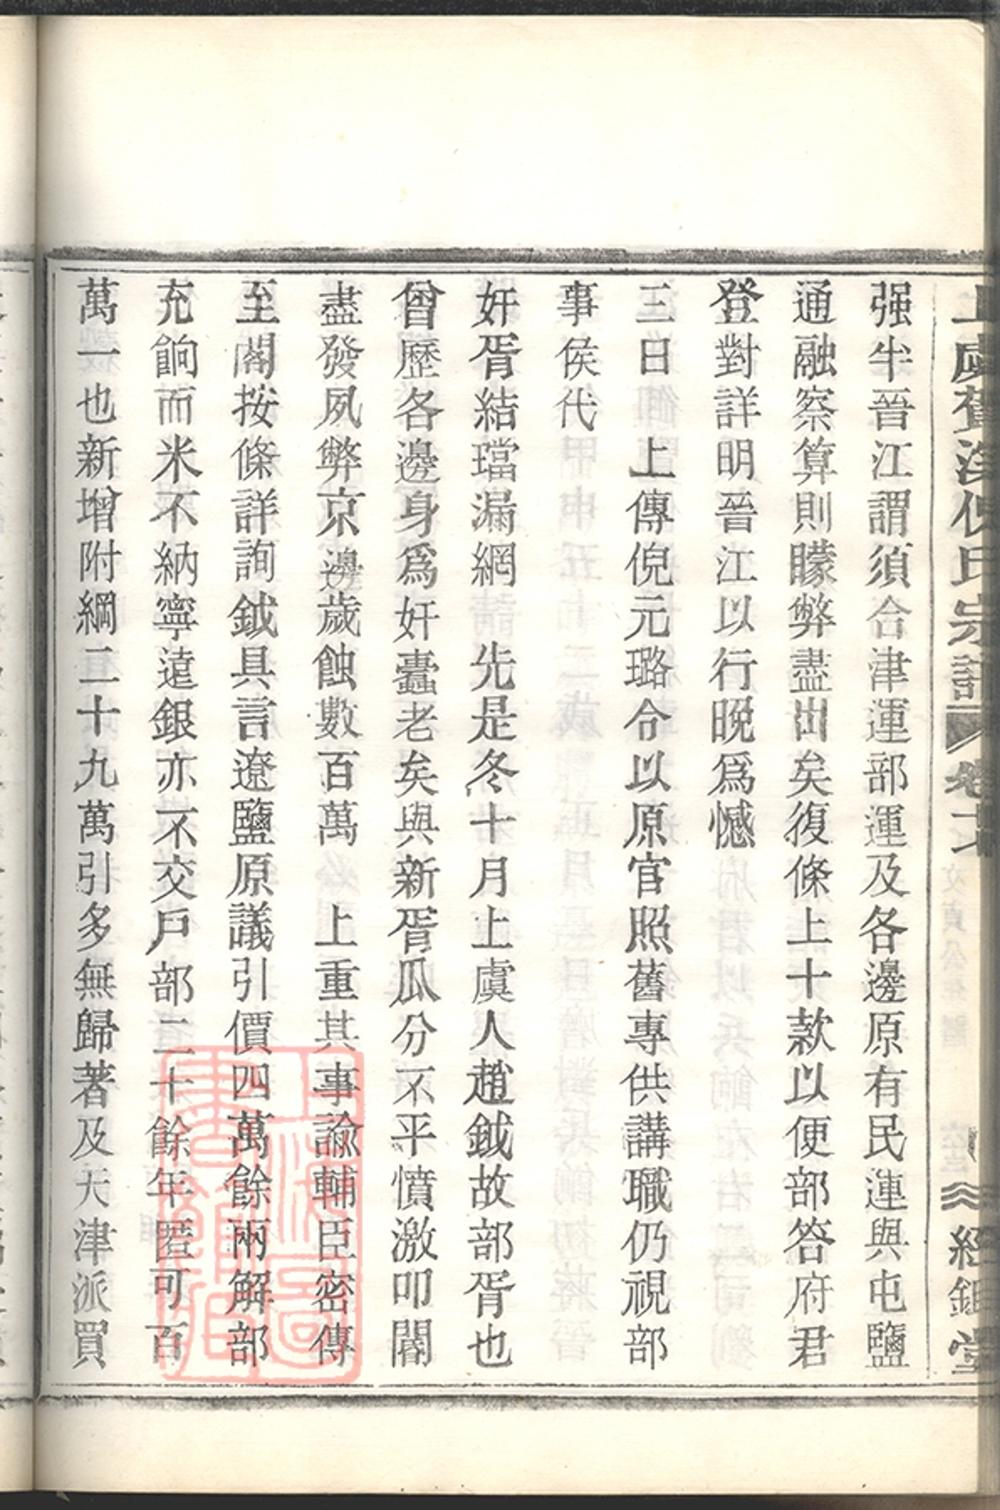 上虞賀溪倪氏宗譜 卷十 經鉏堂
强半晉江謂須合津運部運及各邊原有民運與屯鹽
通融察算則矇弊盡出矣復條上十款以便部答府君
登對詳明晉江以行晚爲憾
三日 上傳倪元璐令以原官照舊專供講職仍視部
事侯代
奸胥結璫漏網 先是冬十月上虞人趙鉞故部胥也
曾歷各邊身爲奸蠹老矣與新胥瓜分不平憤激叩閽
盡發夙弊京邊歲蝕數百萬 上重其事諭輔臣密傳
至閣按條詳詢鉞具言遼鹽原議引價四萬餘兩解部
充餉而米不納寧遠銀亦不交戶部二十餘年匿可百
萬一也新增附綱二十九萬引多無歸著及天津派買